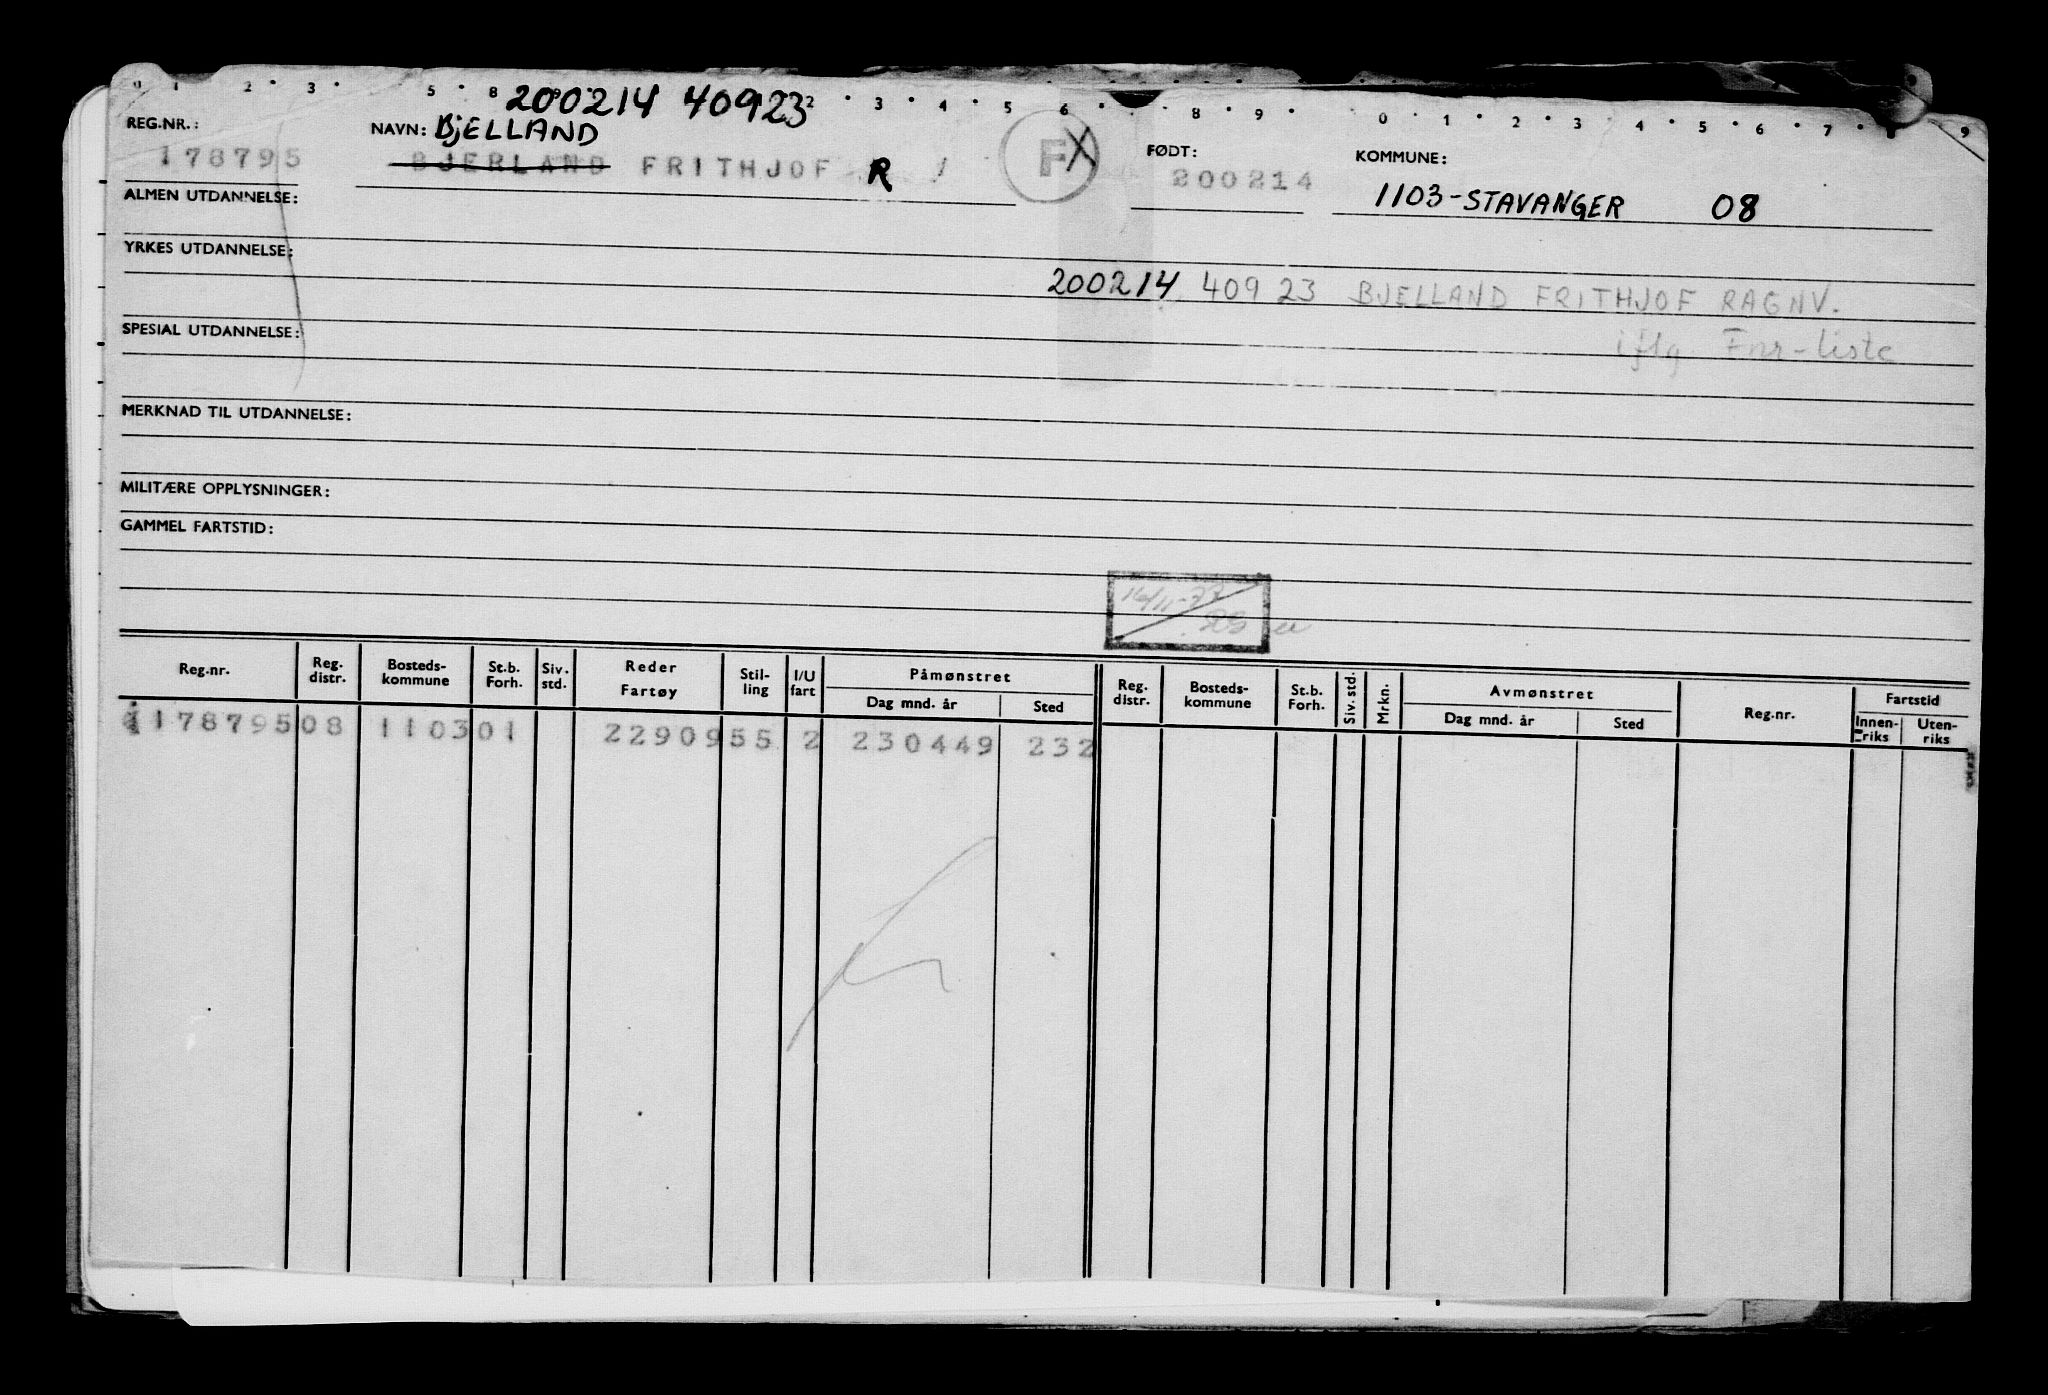 0 1 2 3 5 8 200214 40923 2 3 4 5 6 8 9 0 1 2 3 4 5 6 7 8 9
REG.NR.: NAVN: BJELLAND FØDT: KOMMUNE:
178795 BJERLAND FRITHJOF R FX 200214 1103-STAVANGER 08
ALMEN UTDANNELSE:
YRKES UTDANNELSE:
200214 40923 BJELLAND FRITHJOF RAGNV.
iflg Fnr-liste
SPESIAL UTDANNELSE:
MERKNAD TIL UTDANNELSE:
MILITÆRE OPPLYSNINGER:
GAMMEL FARTSTID:
16/11-77
Reg.nr. Reg. distr. Bosteds-kommune St.b. Forh. Siv. std. Reder Fartøy Stil-ling I/U fart Påmønstret Dag mnd. år Sted Reg. distr. Bosteds-kommune St.b. Forh. Siv. std. Mrkn. Avmønstret Dag mnd. år Sted Reg.nr. Fartstid Innen-riks Uten-riks
178795 08 1103 01 22909 55 2 230449 232